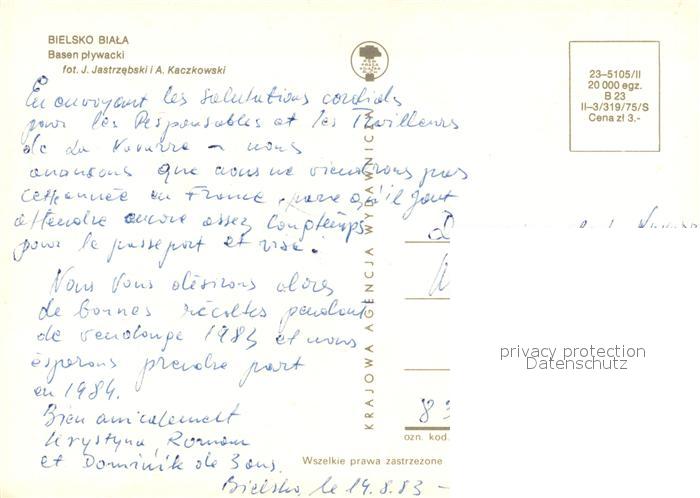 BIELSKO BIAŁA
Basen pływacki
fot. J. Jastrzębski i A. Kaczkowski
23–5105/II
20 000 egz.
B 23
II–3/319/75/S
Cena zł 3.-
En envoyant les salutations cordials
pour les Responsables et les Travilleurs
de La – nous
anonsons que nous ne viendrons pas
cette année en France, parce qu'il faut
attendre encore assez longtemps
pour le passeport et visa.
Nous Vous désirons alors
de bonnes récoltes pendant
de vendange 1983 et nous
ésperons prendre part
en 1984.
Bien amicalement
Krystyna Roman
et Dominik de 3 ans.
Bielsko, le 14.8.83 –
KRAJOWA AGENCJA WYDAWNICZA
83
ozn. kod.
Wszelkie prawa zastrzeżone
privacy protection
Datenschutz